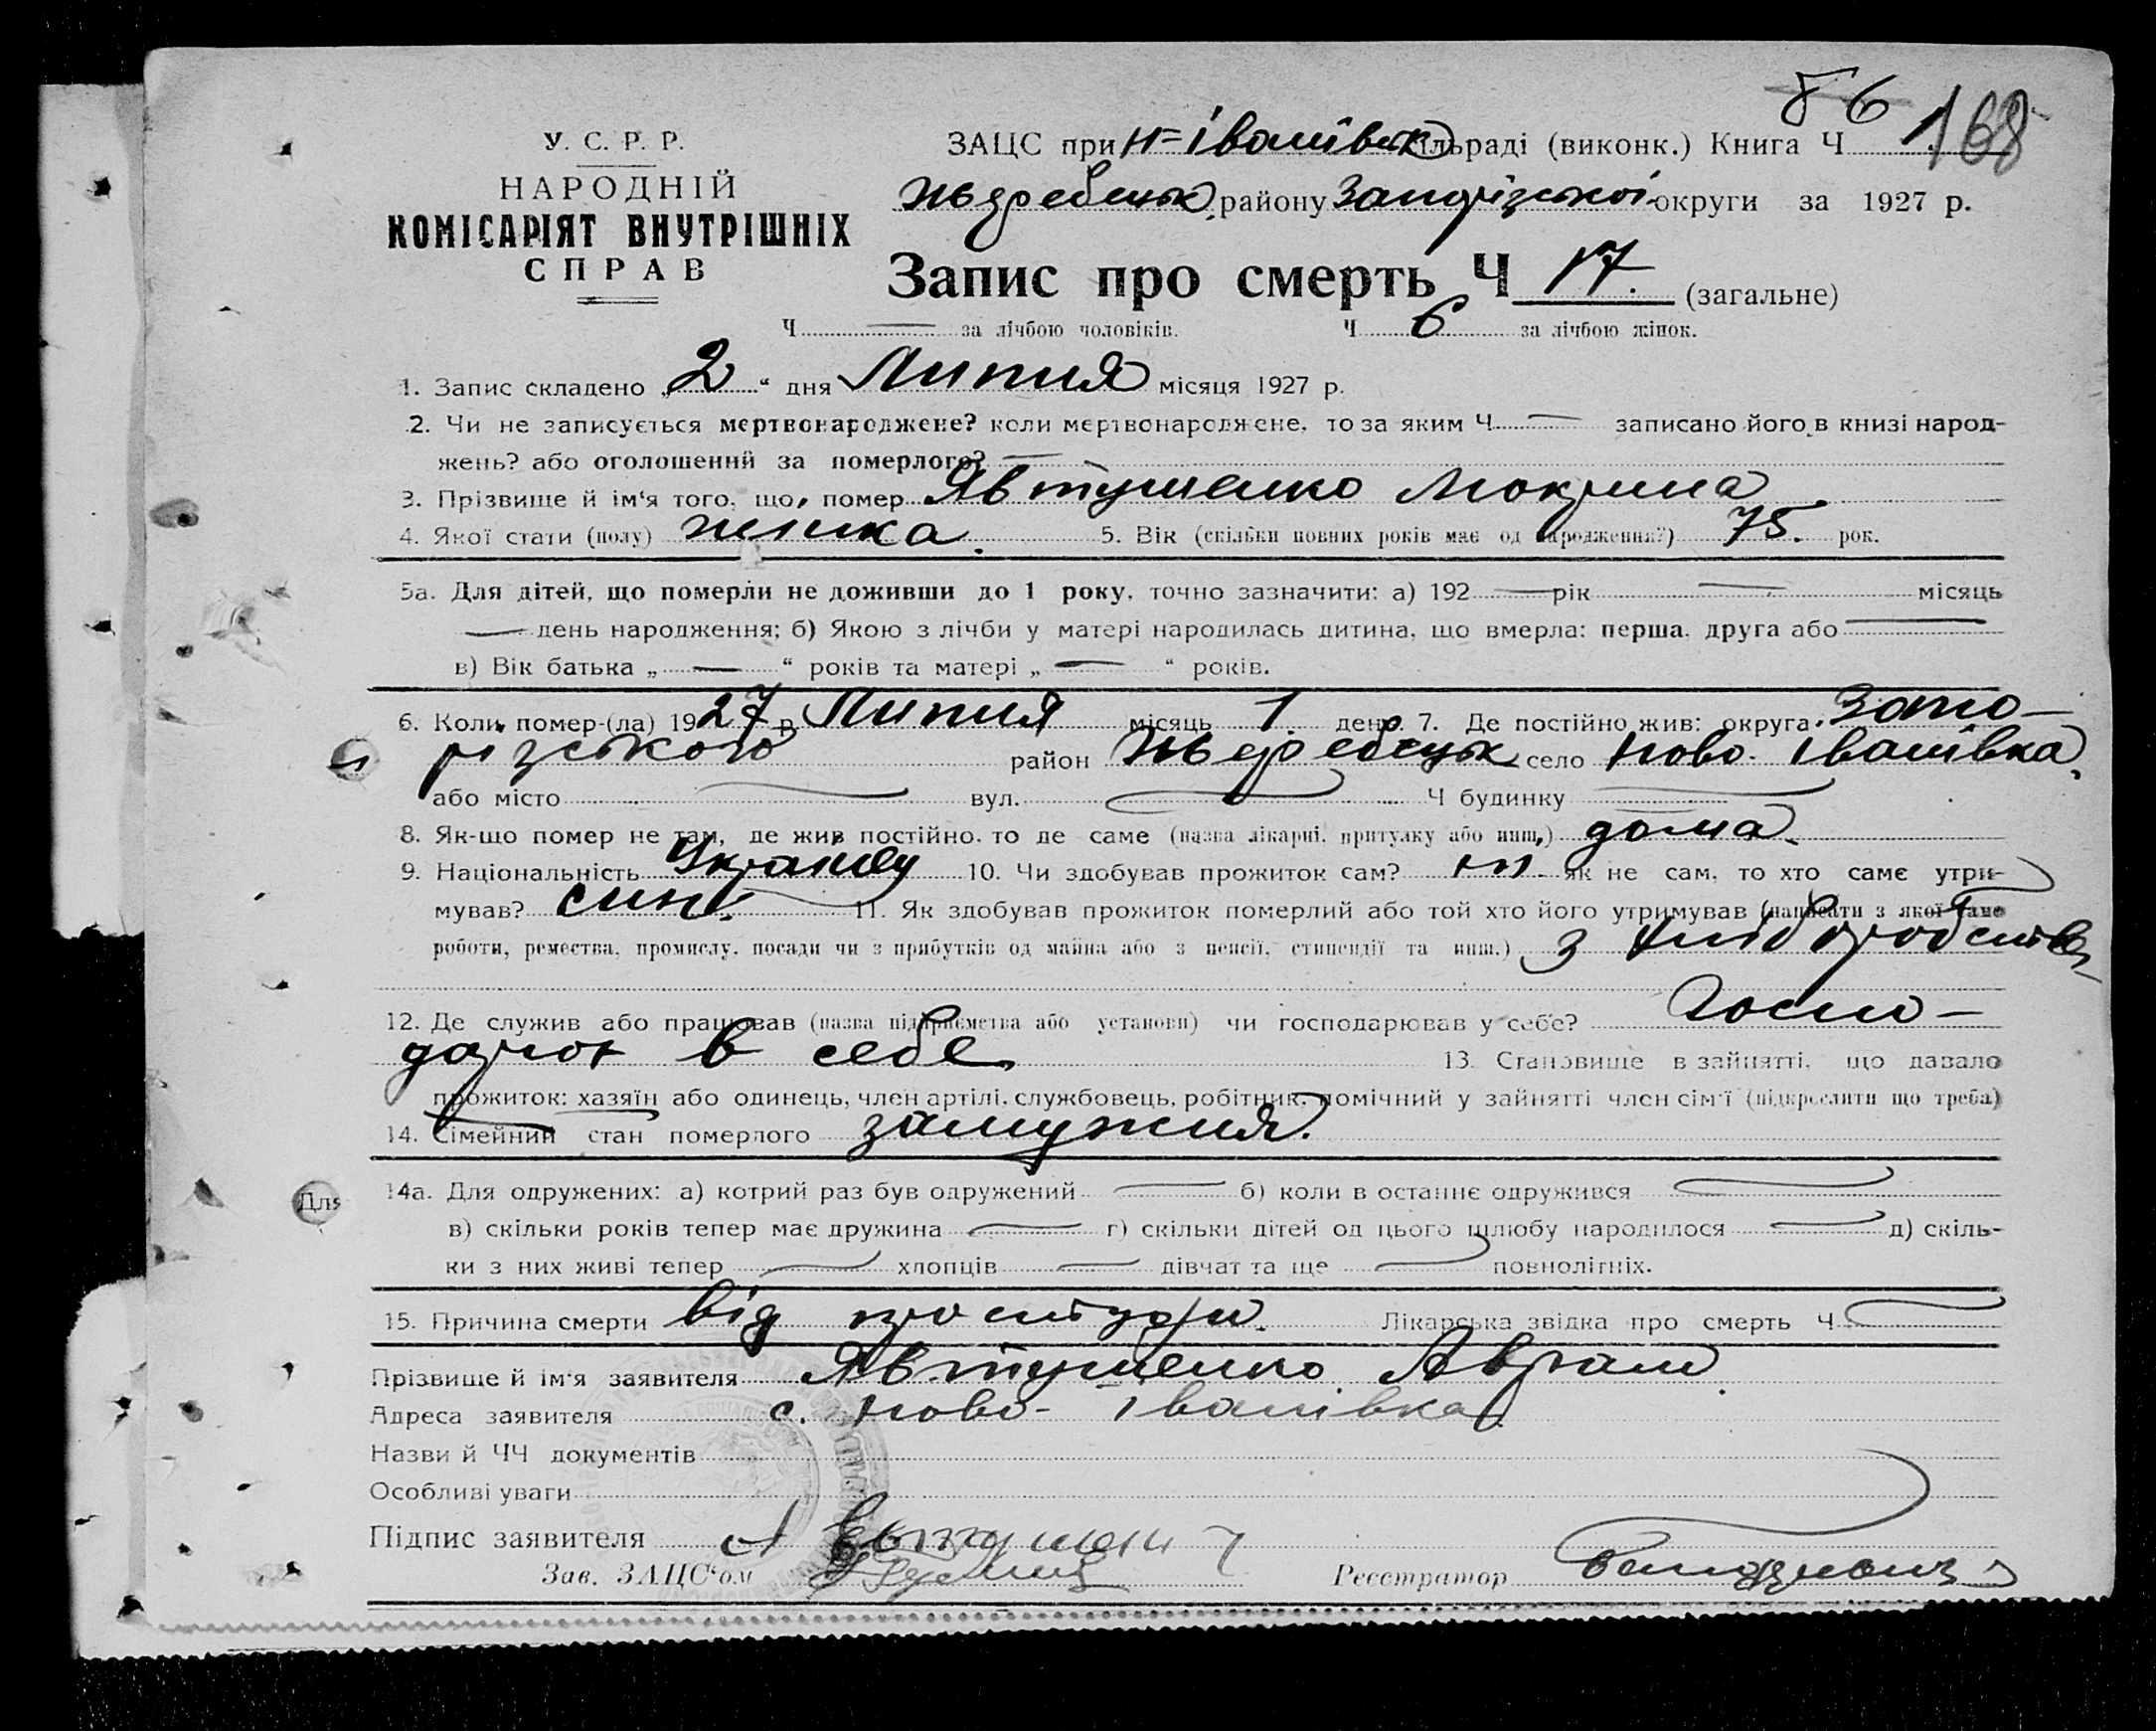 86
168
У. С. Р. Р.
НАРОДНІЙ
КОМІСАРІЯТ ВНУТРІШНІХ
СПРАВ
ЗАЦС при Н-Іванівськ сільраді (виконк.) Книга Ч 1.
Жеребецьк. району Запорізської округи за 1927 р.
Запис про смерть Ч 17. (загальне)
Ч — за лічбою чоловіків. Ч 6 за лічбою жінок.
1. Запис складено „2“ дня Липня місяця 1927 р.
2. Чи не записується мертвонароджене? коли мертвонароджене, то за яким Ч — записано його в книзі народ-
жень? або оголошений за померлого? —
3. Прізвище й ім‘я того, що помер Явтушенко Мокрина.
4. Якої стати (полу) жінка. 5. Вік (скільки повних років має од народження?) 75. рок.
5а. Для дітей, що померли не доживши до 1 року, точно зазначити: а) 192 — рік — місяць
— день народження; б) Якою з лічби у матері народилась дитина, що вмерла: перша, друга або —
в) Вік батька „ — “ років та матері „ — “ років.
6. Коли помер-(ла) 1927 р. Липня місяць 1. день. 7. Де постійно жив: округа Запо-
різського район Жеребецьк село Ново-Іванівка,
або місто — вул. — Ч будинку —
8. Як-що помер не там, де жив постійно, то де саме (назва лікарні, притулку або инш.) дома.
9. Національність Украінц 10. Чи здобував прожиток сам? ні. як не сам, то хто саме утри-
мував? син. 11. Як здобував прожиток померлий або той хто його утримував (написати з якої саме
роботи, ремества, промислу, посади чи з прибутків од майна або з пенсії, стипендії та инш.) з хліборобства
12. Де служив або працював (назва підприємства або установи) чи господарював у себе? Госпо-
дарюг в себе 13. Становище в зайнятті, що давало
прожиток: хазяїн або одинець, член артілі, службовець, робітник, помічний у зайнятті член сім‘ї (підкреслити що треба)
14. Сімейний стан померлого замужня.
14а. Для одружених: а) котрий раз був одружений — б) коли в останнє одружився —
в) скільки років тепер має дружина — г) скільки дітей од цього шлюбу народилося — д) скіль-
ки з них живі тепер — хлопців — дівчат та ще — повнолітніх.
15. Причина смерти від простуди. Лікарська звідка про смерть Ч —
Прізвище й ім‘я заявителя Явтушенко Аврам.
Адреса заявителя с. Ново-Іванівка.
Назви й ЧЧ документів
Особливі уваги
Підпис заявителя
Зав. ЗАЦС‘ом Реєстратор
Для